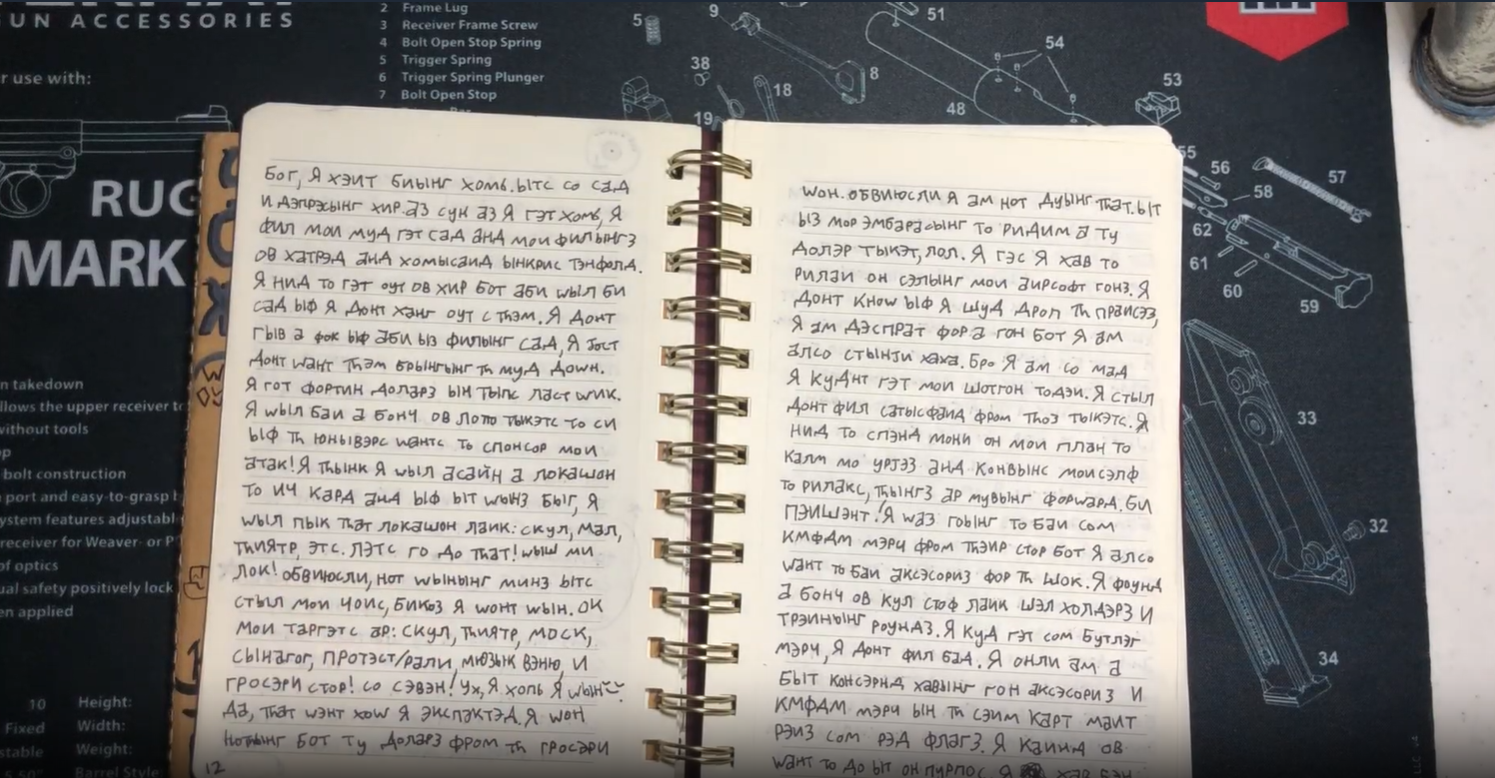 GUN ACCESSORIES
2 Frame Lug
3 Receiver Frame Screw
4 Bolt Open Stop Spring
5 Trigger Spring
6 Trigger Spring Plunger
7 Bolt Open Stop
r use with:
RUG
MARK
n takedown
llows the upper receiver to
without tools
op
bolt construction
port and easy-to-grasp
ystem features adjustabl
receiver for Weaver- or P
of optics
ual safety positively lock
en applied
10 Height:
Fixed Width:
stable Weight:
5.50" Barrel Style
5
9
8
38
18
19
51
54
48
53
55
56
57
58
62
61
60
59
33
32
34
Бог, Я хэит биынг хомь. ытс со сад
и дэпрэсынг хир. аз сун аз Я гэт хомь, Я
фил мои муд гэт сад анд мои филынгз
ов хатрэд анд хомысаид ынкрис тэнфолд.
Я нид то гэт оут ов хир бот аби wыл би
сад ыф Я донт ханг оут с thэм. Я донт
гыв а фок ыф аби ыз филынг сад, Я jост
донт wант thэм брынгынг th муд доwн.
Я гот фортин доларз ын тыпс ласт wик.
Я wыл баи а бонч ов лото тыкэтс то си
ыф th юнывэрс wантс то спонсор мои
атак! Я thынк Я wыл асайн а локашон
то ич кард анд ыф ыт wынз быг, Я
wыл пык тhат локашон лаик: скул, мал,
thиятр, этс. Лэтс го до thат! wыш ми
лок! обвиюсли, нот wынынг минз ытс
стыл мои чоис, бикоз Я wонт wын. ок
мои таргэтс ар: скул, thиятр, моск,
сынагог, протэст/рали, мюзык вэню, и
гросэри стор! со сэвэн! Ух, Я хопь Я wын
Да, thат wэнт хоw Я экспэктэд. Я wон
ноthынг бот ту доларз фром th гросэри
12
wон. обвиюсли Я ам нот дуынг тhат. ыт
ыз мор эмбарасынг то ридим а ту
долэр тыкэт, лол. Я гэс Я хав то
рилаи он сэлынг мои аирсофт гонз. Я
донт кноw ыф Я шуд дроп th праисэз,
Я ам дэспрат фор а гон бот Я ам
алсо стынjи хаха. Бро Я ам со мад
Я куднт гэт мои шотгон тодэи. Я стыл
донт фил сатысфаид фром thоз тыкэтс. Я
нид то спэнд мони он мои план то
калм мо урjэз анд конвынс моисэлф
то рилакс, thынгз ар мувынг форwард. би
пэишэнт! Я wаз гоынг то баи сом
кмфдм мэрч фром thэир стор бот Я алсо
wант то баи аксэсориз фор th шок. Я фоунд
а бонч ов кул стоф лаик шэл холдэрз и
трэинынг роундз. Я куд гэт сом бутлэг
мэрч, Я донт фил бад. Я онли ам а
быт консэрнд хавынг гон аксэсориз и
кмфдм мэрч ын th сэим карт маит
рэиз сом рэд флагз. Я каинд ов
wант то до ыт он пурпос. Я хав бэн